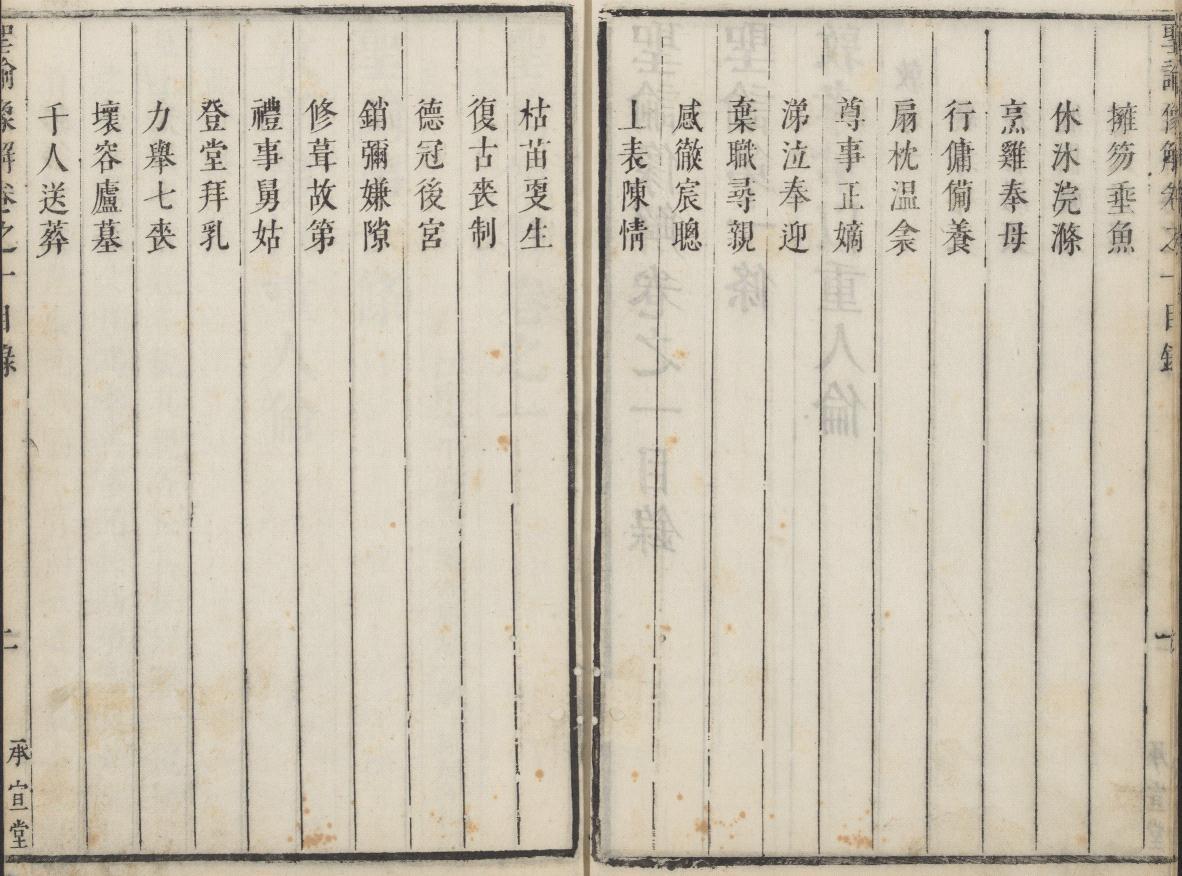 擁篲垂魚
休沐浣滌
烹雞奉母
行傭備養
扇枕温衾
尊事正嫡
涕泣奉迎
棄職尋親
感徹宸聰
上表陳情
枯苗更生
復古喪制
德冠後宮
銷彌嫌隙
修葺故第
禮事舅姑
登堂拜乳
力舉七喪
壞容廬墓
千人送葬
聖諭像解卷之一目錄
二
承宣堂